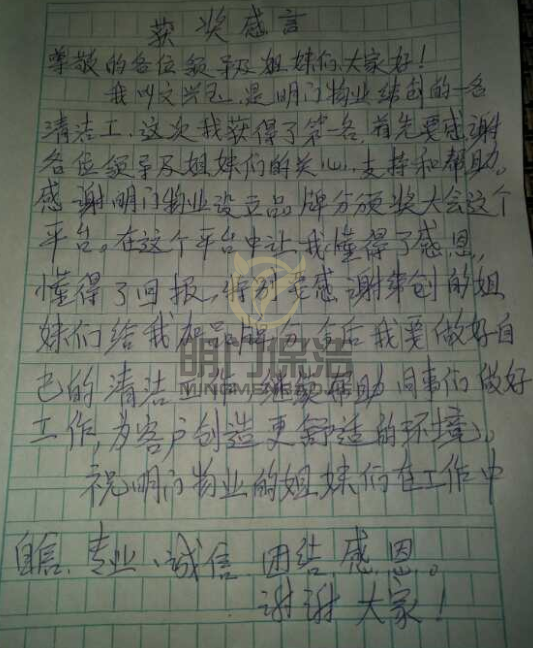 获奖感言
尊敬的各位领导及姐妹们大家好！
我叫文兴玉，是明门物业纬创的一名
清洁工，这次我获得了第一名，首先要感谢
各位领导及姐妹们的关心、支持和帮助。
感谢明门物业设立品牌分颁奖大会这个
平台。在这个平台中让我懂得了感恩，
懂得了回报，特别要感谢纬创的姐
妹们给我加品牌分，今后我要做好自
己的清洁工作，继续帮助同事们做好
工作，为客户创造更舒适的环境。
祝明门物业的姐妹们在工作中
自信、专业、诚信、团结、感恩。
谢谢大家！
明门保洁
MINGMENBAOJIE